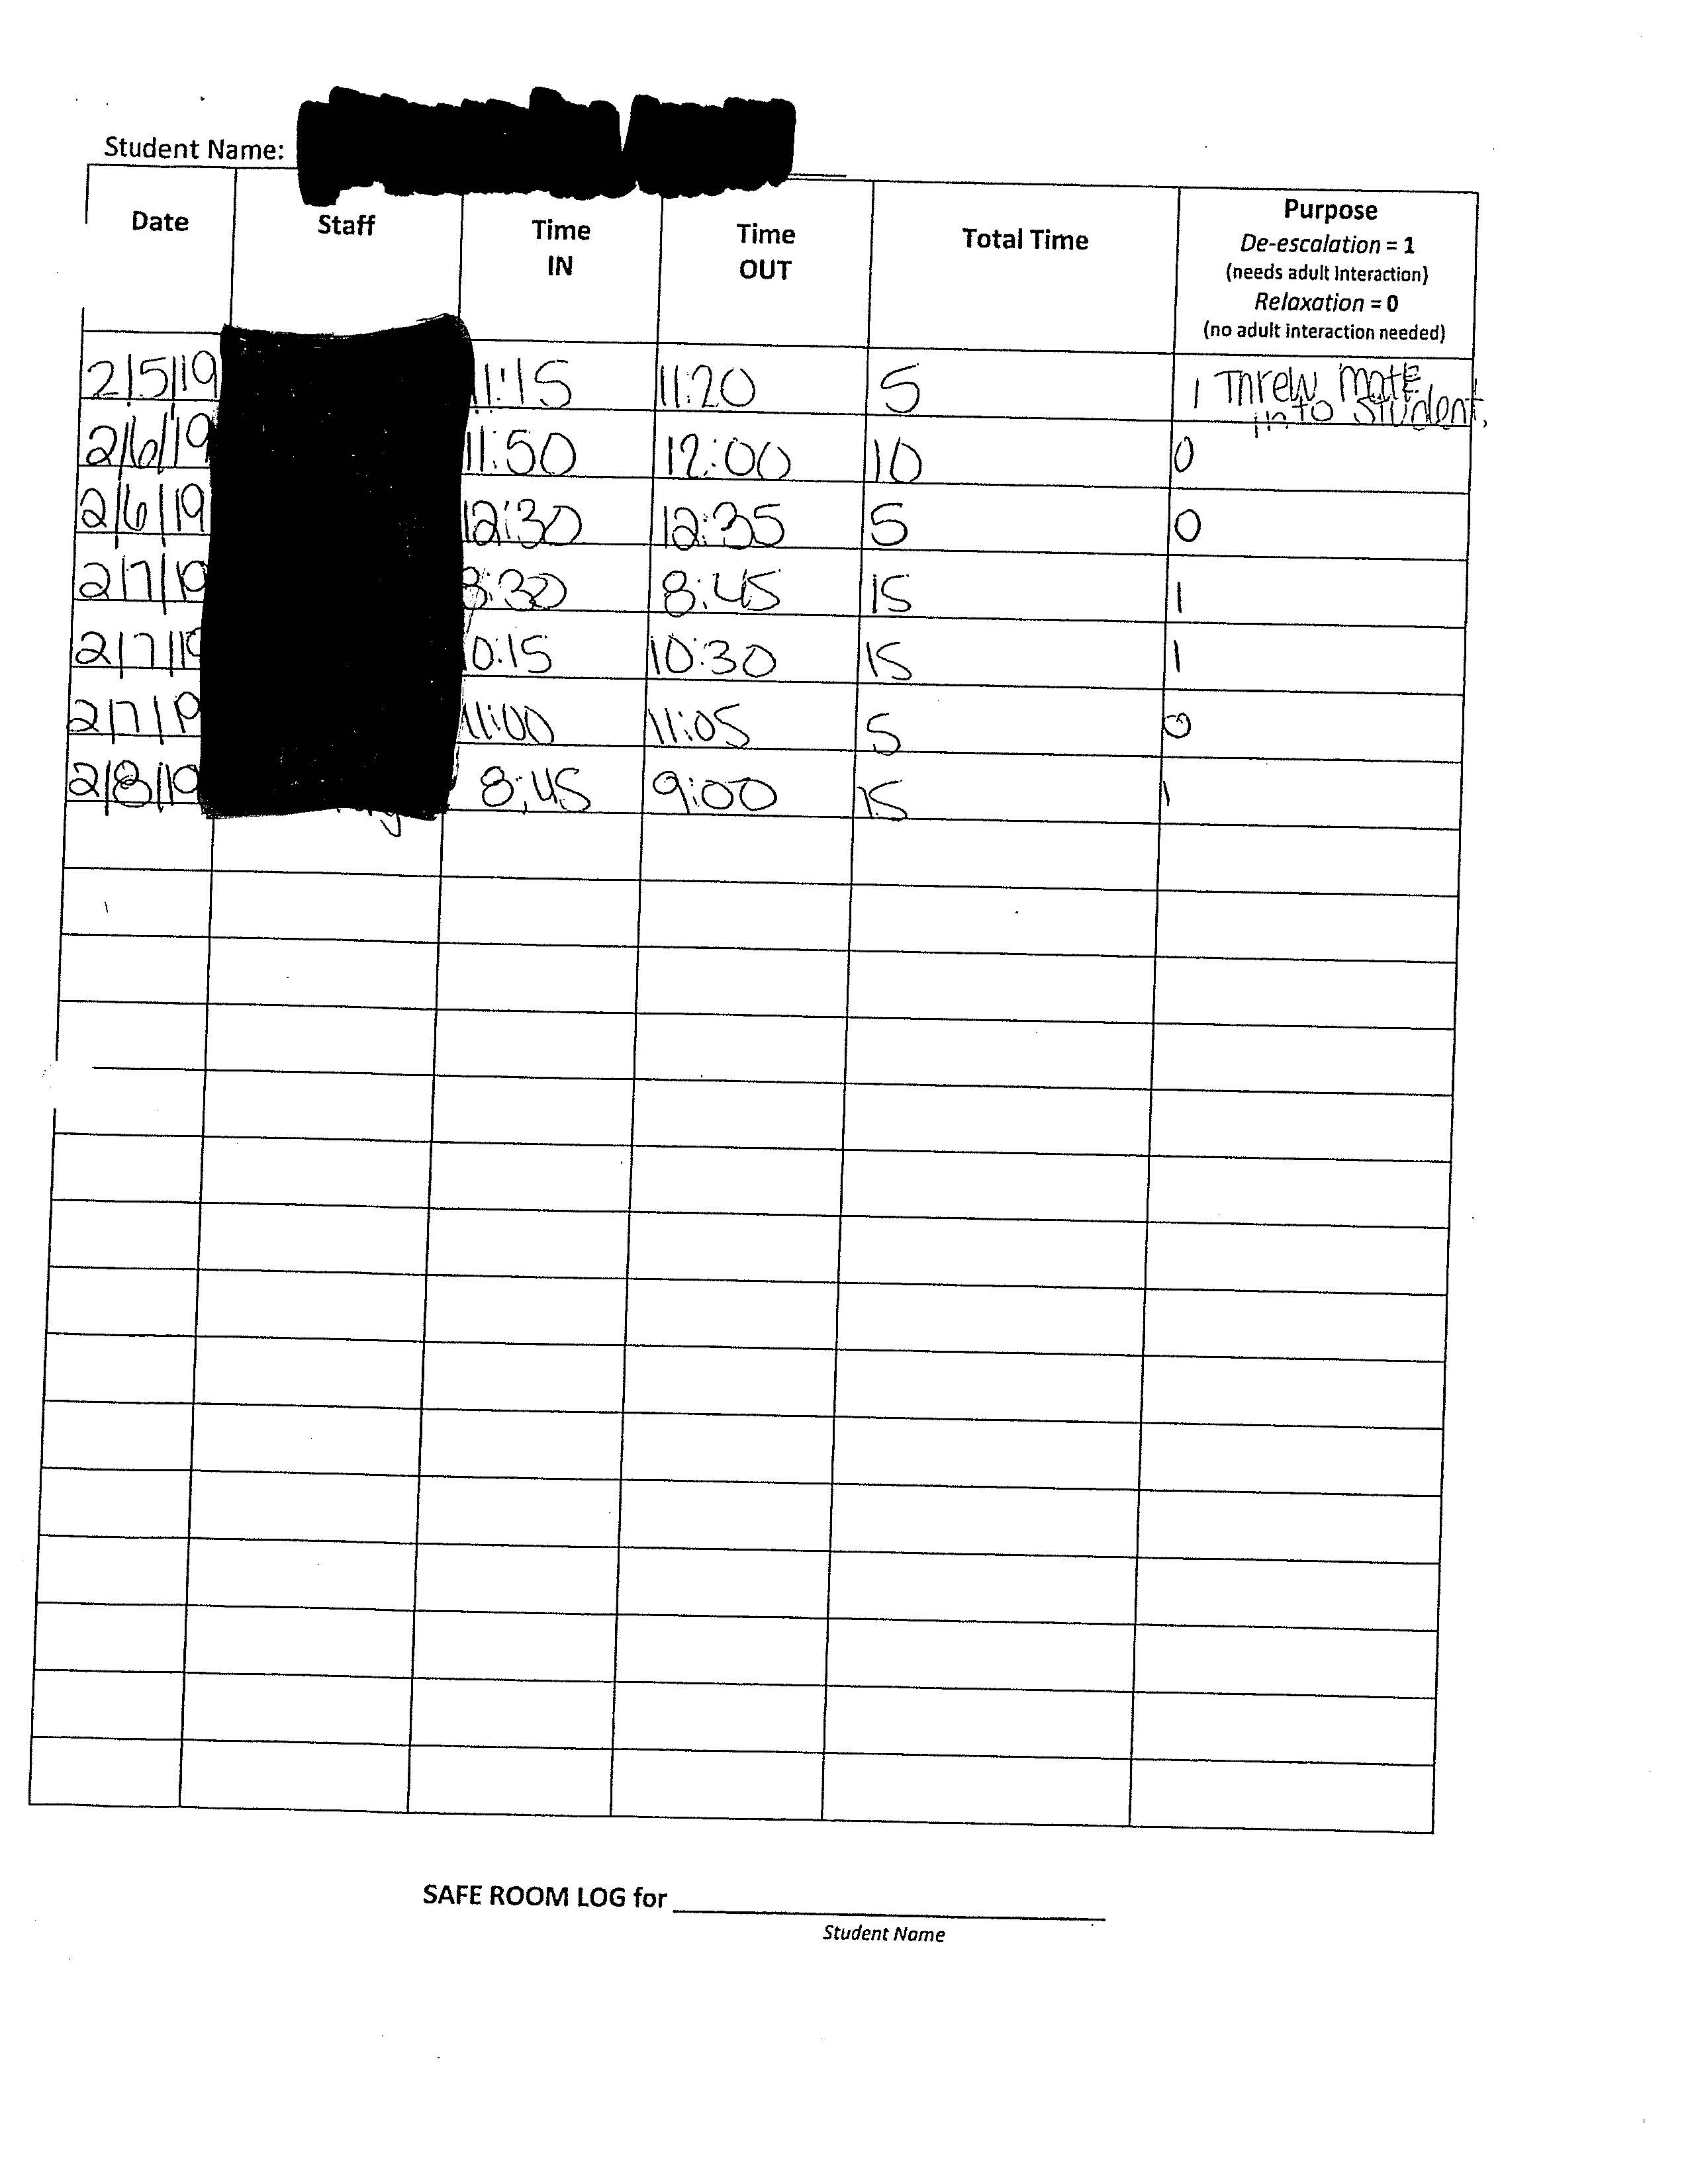 Student Name:
Date Staff Time IN Time OUT Total Time Purpose
De-escalation = 1
(needs adult interaction)
Relaxation = 0
(no adult interaction needed)
2/5/19 11:15 11:20 5 1 Threw
into student.
2/6/19 11:50 12:00 10 0
2/6/19 12:30 12:35 5 0
2/7/19 8:30 8:45 15 1
2/7/19 10:15 10:30 15 1
2/7/19 11:00 11:05 5 0
2/8/19 8:45 9:00 15 1
SAFE ROOM LOG for
Student Name